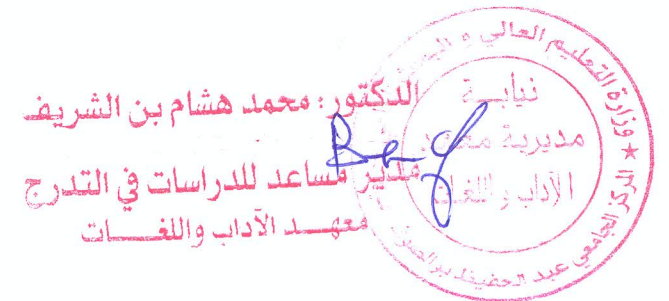 الدكتور: محمد هشام بن الشريف
مدير مساعد للدراسات في التدرج
معهــد الآداب واللغــات
وزارة التعليم العالي و
المركز الجامعي عبد الحفيظ
نيابــة
مديرية معهد
الآداب واللغات